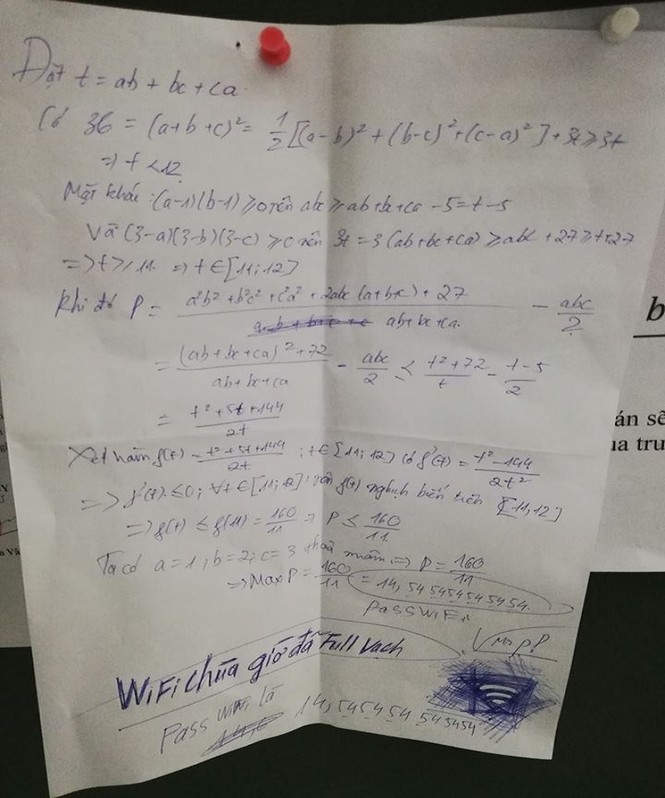 Đặt t = ab + bc + ca
Có 36 = (a+b+c)² = 1/2[(a-b)² + (b-c)² + (c-a)²] + 3t ≥ 3t
=> t ≤ 12
Mặt khác: (a-1)(b-1) ≥ 0 nên abc ≥ ab+bc+ca - 5 = t-5
Và (3-a)(3-b)(3-c) ≥ 0 nên 3t = 3(ab+bc+ca) ≥ abc + 27 ≥ t+22
=> t ≥ 11 => t ∈ [11;12]
Khi đó P = (a²b² + b²c² + c²a² + 2abc(a+b+c) + 27)/(ab+bc+ca) - abc/2
= ((ab+bc+ca)² + 72)/(ab+bc+ca) - abc/2 ≤ (t²+72)/t - (t-5)/2
= (t²+5t+144)/2t
Xét hàm f(t) = (t²+5t+144)/2t ; t ∈ [11;12] Có f'(t) = (t²-144)/2t²
=> f'(t) ≤ 0; ∀t ∈ [11;12] nên f(t) nghịch biến trên [11,12]
=> f(t) ≤ f(11) = 160/11 => P ≤ 160/11
Ta có a=1; b=2; c=3 thoả mãn => P = 160/11
=> Max P = 160/11 = 14,545454545454
Pass WiFi
WiFi chùa giờ đã Full vạch
Pass WiFi là 14,545454545454
b
án sẽ
ua tru